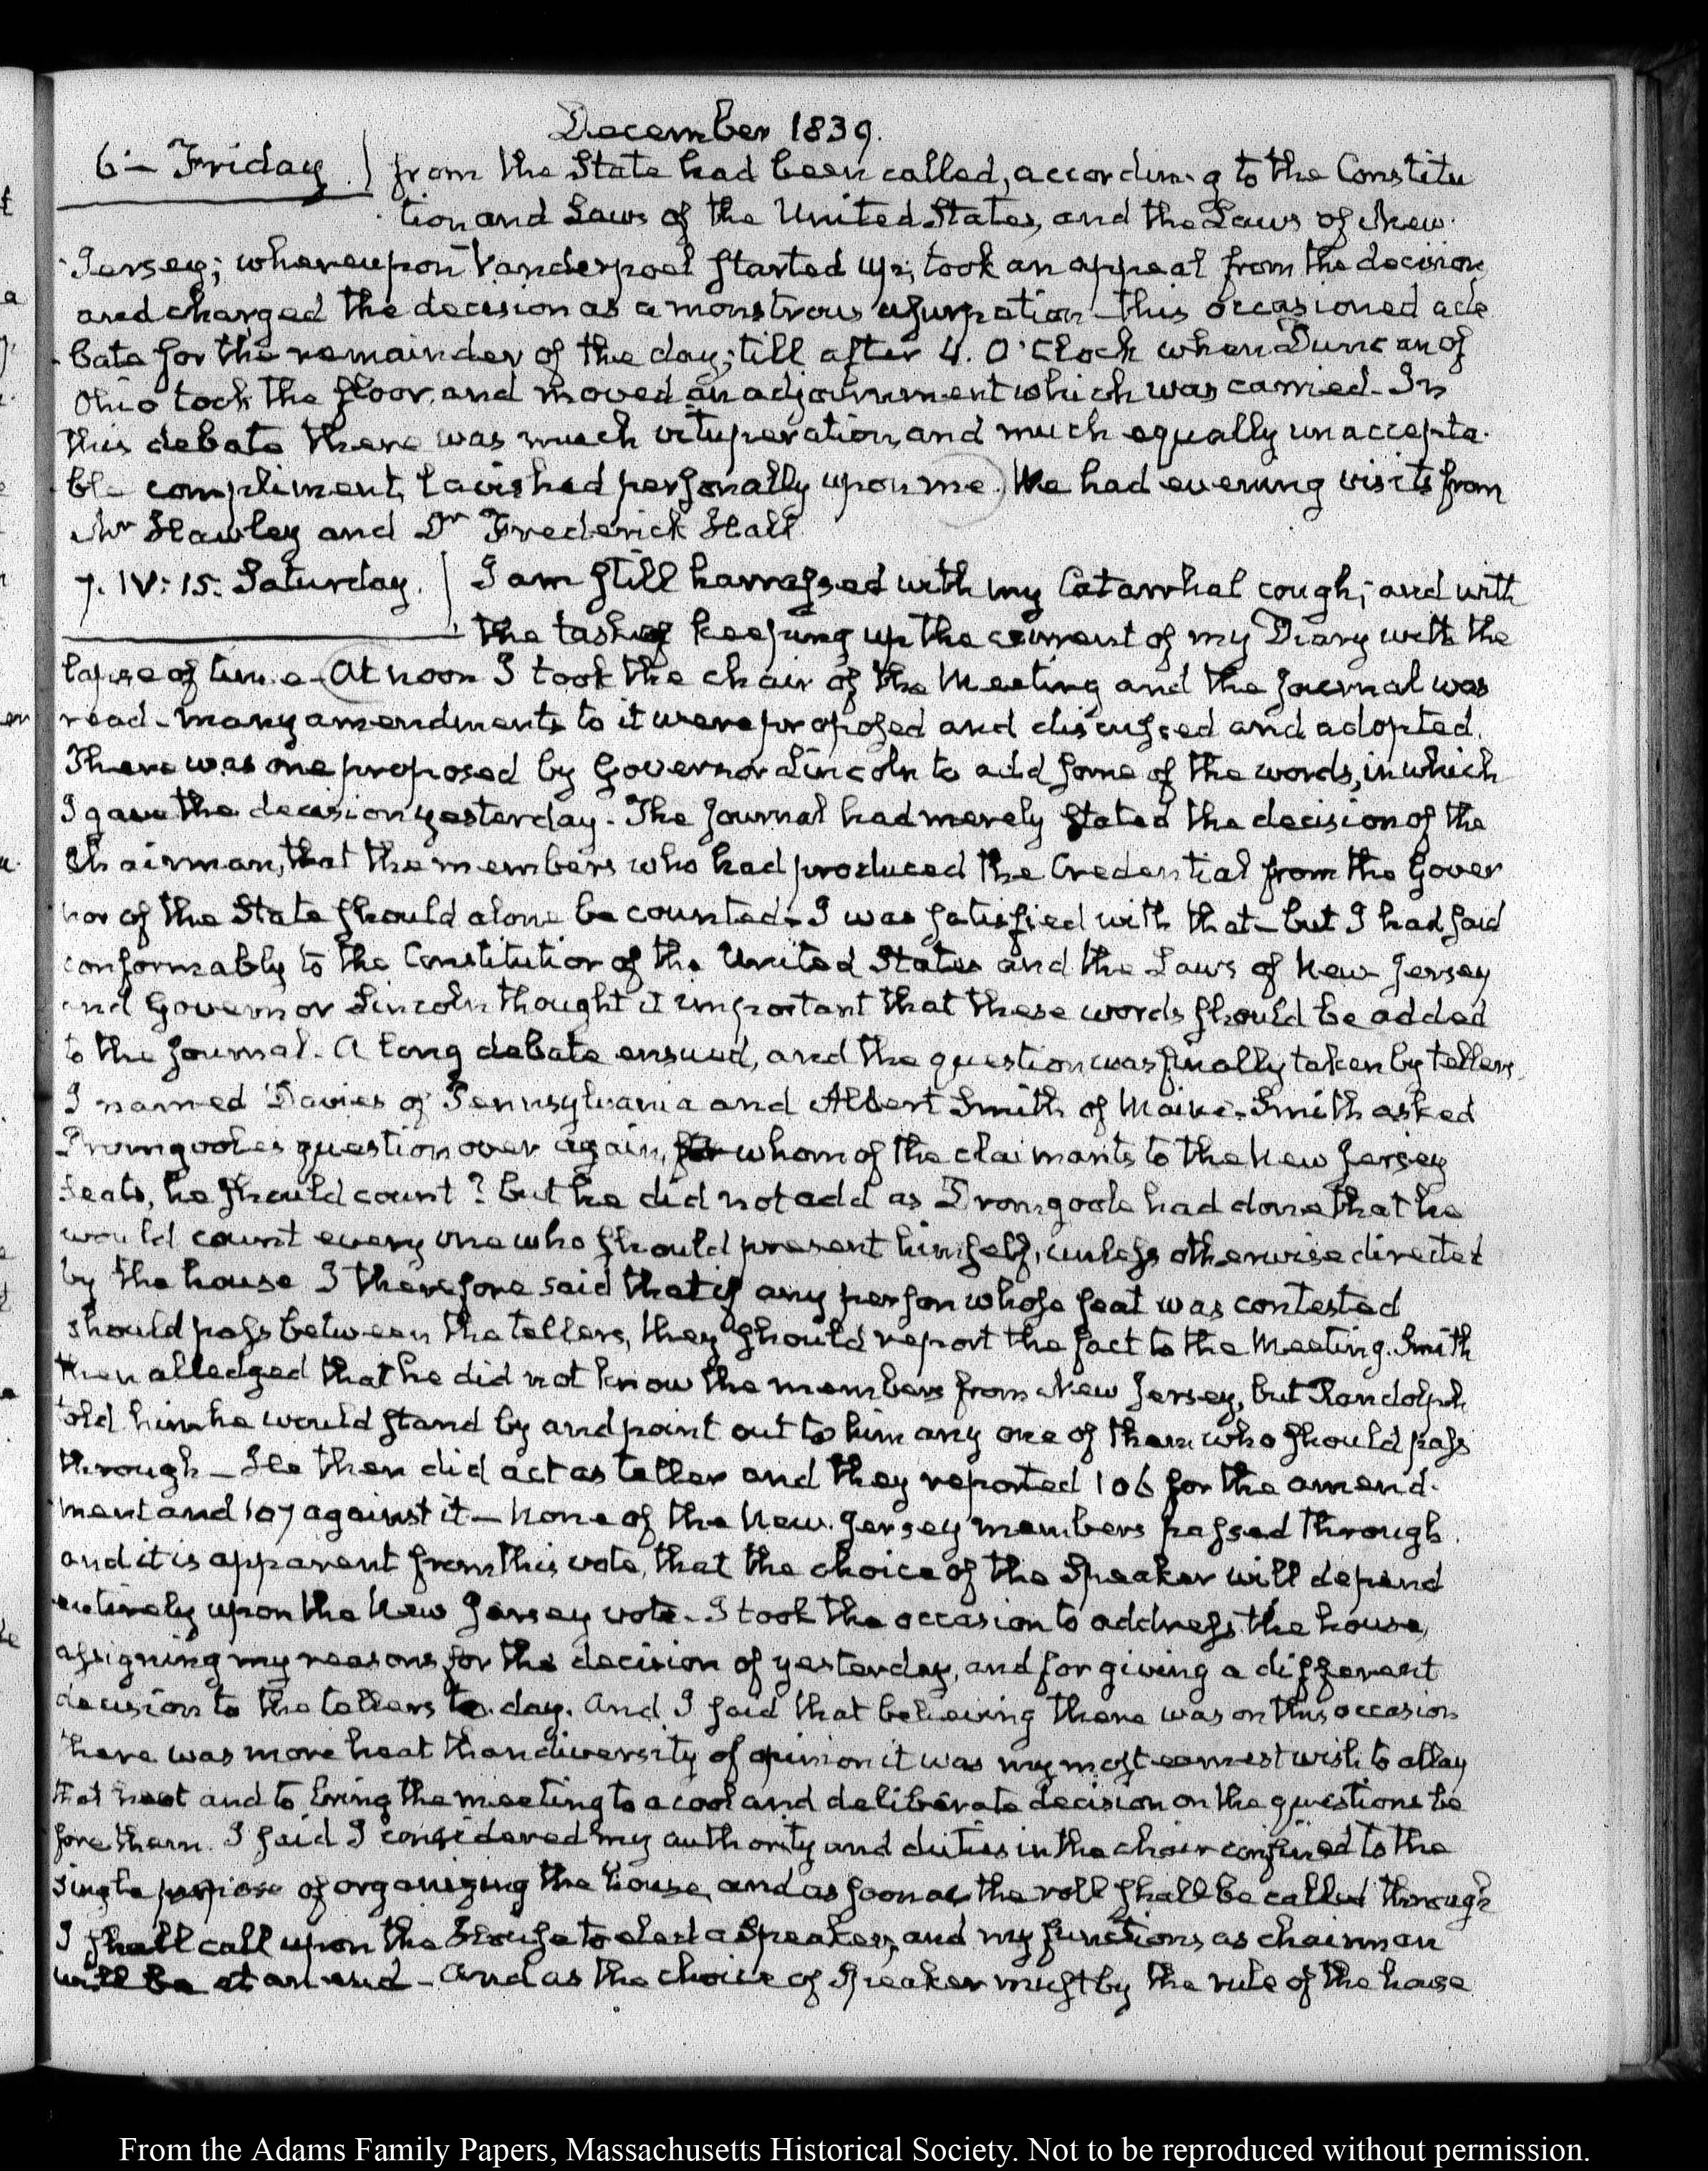 December 1839.
6.— Friday. from the State had been called, according to the Constitu
tion and Laws of the United States, and the Laws of New-
Jersey; whereupon Vanderpoel started up, took an appeal from the decision
and charged the decision as a monstrous usurpation—this occasioned a de
bate for the remainder of the day, till after 4. O'Clock when Duncan of
Ohio took the floor, and moved an adjournment which was carried. In
this debate there was much vituperation, and much equally unaccepta-
ble compliment, lavished personally upon me. We had evening visits from
Mr Hawley and Dr Frederick Hall
7. IV: 15. Saturday. I am still harrassed with my Catarrhal cough; and with
the task of keeping up the current of my Diary with the
lapse of time—At noon I took the chair of the Meeting and the journal was
read—many amendments to it were proposed and discussed and adopted.
There was one proposed by Governor Lincoln to add some of the words, in which
I gave the decision yesterday. The journal had merely stated the decision of the
Chairman, that the members who had produced the Credential from the Gover
nor of the State should alone be counted. I was satisfied with that—but I had said
conformably to the Constitution of the United States and the Laws of New Jersey
and Governor Lincoln thought it important that these words should be added
to the journal. A long debate ensued, and the question was finally taken by tellers,
I named Davies of Pennsylvania and Albert Smith of Maine. Smith asked
Dromgooles question over again, whom of the claimants to the New Jersey
seats, he should count? but he did not add as Dromgoole had done that he
would count every one who should present himself, unless otherwise directed
by the house I therefore said that if any person whose seat was contested
should pass between the tellers, they should report the fact to the Meeting. Smith
then alledged that he did not know the members from New Jersey, but Randolph
told him he would stand by and point out to him any one of them who should pass
through—He then did act as teller and they reported 106 for the amend-
ment and 107 against it—None of the New Jersey members passed through
and it is apparent from this vote, that the choice of the Speaker will depend
entirely upon the New Jersey vote. I took the occasion to address the house,
assigning my reasons for the decision of yesterday, and for giving a different
decision to the tellers to-day. And I said that believing there was on this occasion
there was more heat than diversity of opinion it was my most earnest wish to allay
that heat and to bring the meeting to a cool and deliberate decision on the questions be
fore them. I said I considered my authority and duties in the chair confined to the
single purpose of organizing the house, and as soon as the roll shall be called through
I shall call upon the House to elect a Speaker, and my functions as chairman
will be at an end—And as the choice of Speaker must by the rule of the house
From the Adams Family Papers, Massachusetts Historical Society. Not to be reproduced without permission.